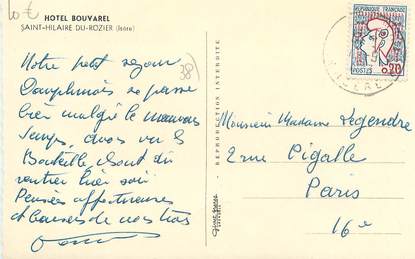 10 €
HOTEL BOUVAREL
SAINT-HILAIRE-DU-ROZIER (Isère)
38)
Notre petit séjour
Dauphinois se passe
bien malgré le mauvais
temps, avons vu le
dont dû
rentrer hier soir
Pensées affectueuses
et baisers de nous tous
REPRODUCTION INTERDITE
RÉPUBLIQUE FRANÇAISE
POSTES 0,20
Monsieur Madame Legendre
2 rue Pigalle
Paris
16e